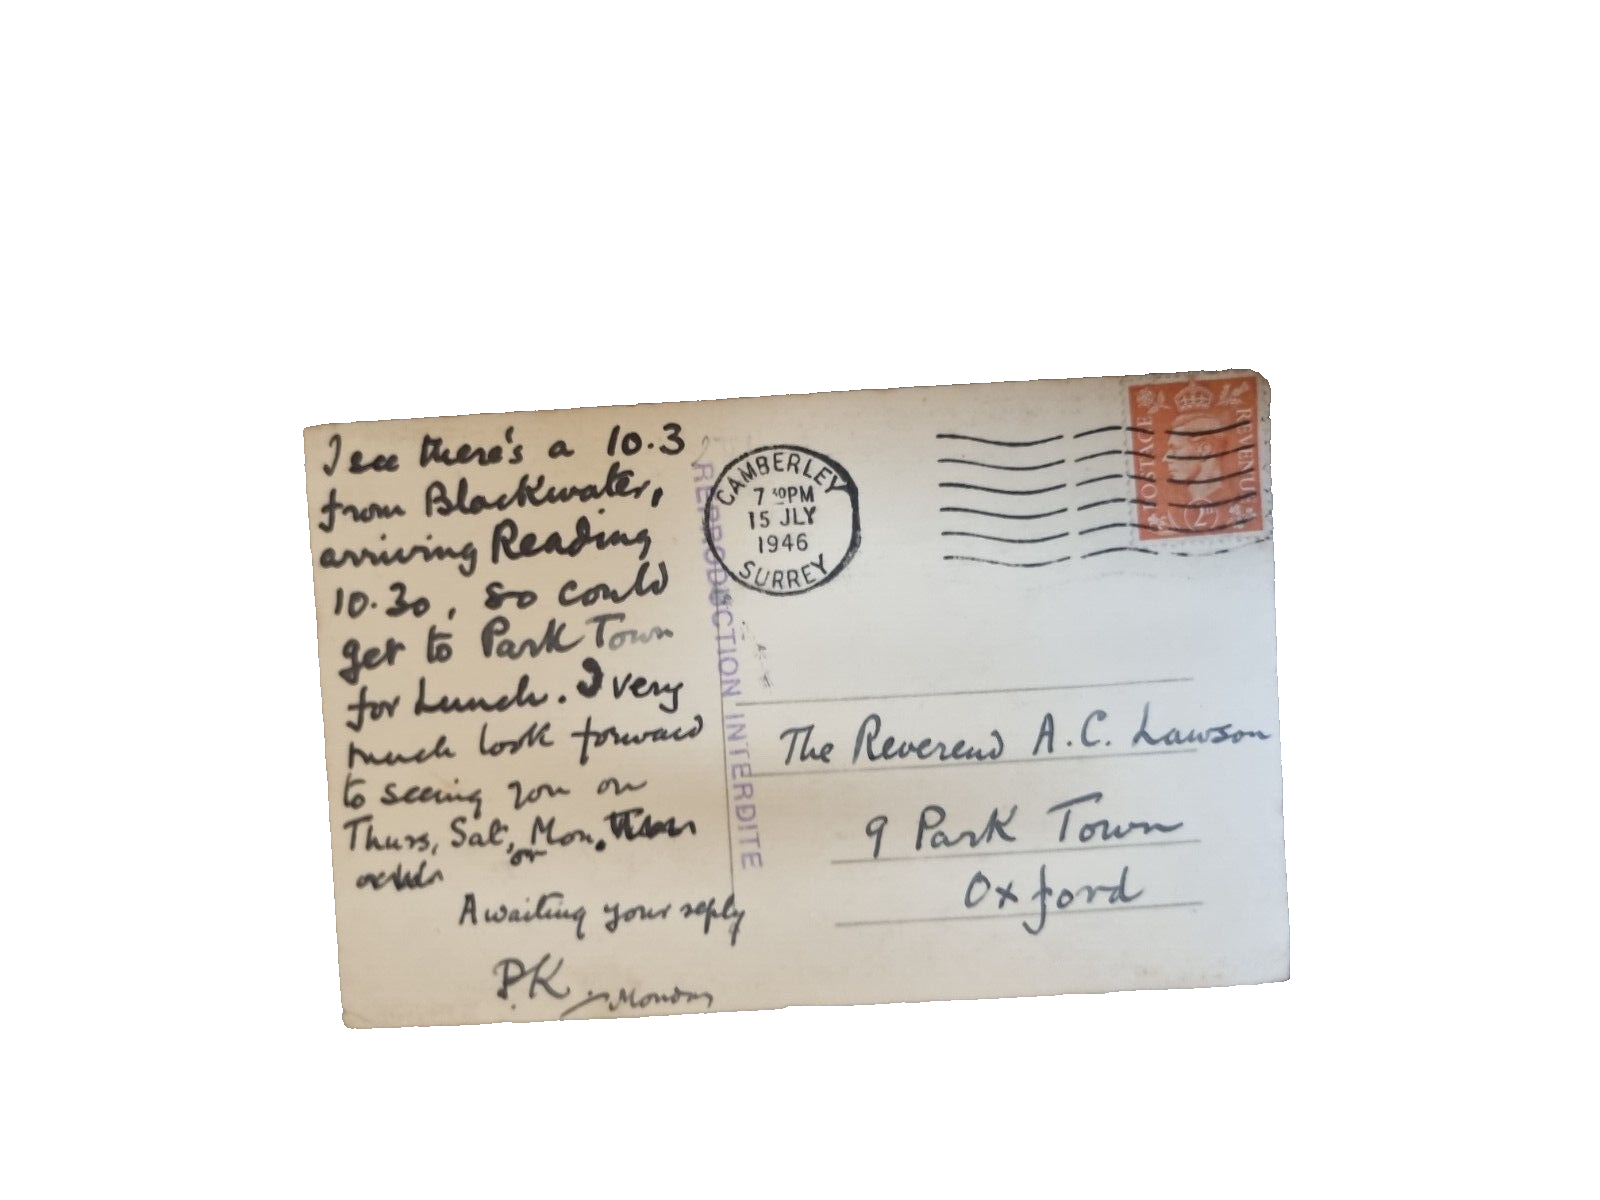 I see there's a 10.3
from Blackwater,
arriving Reading
10.30, so could
get to Park Town
for Lunch. I very
much look forward
to seeing you on
Thurs, Sat, or Mon.
Awaiting your reply
P.K. Monday
REPRODUCTION INTERDITE
CAMBERLEY
7 30PM
15 JLY
1946
SURREY
POSTAGE
REVENUE
The Reverend A.C. Lawson
9 Park Town
Oxford